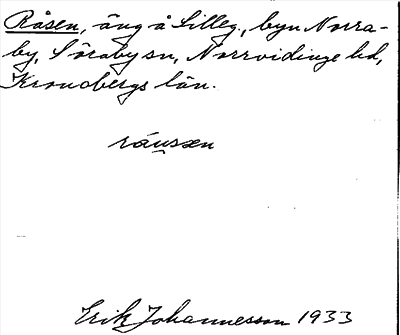 Råsen, äng å Lilleg., byn Norra-
by, Söraby sn, Norrvidinge hd,
Kronobergs län.
råu̯sæn
Erik Johannesson 1933